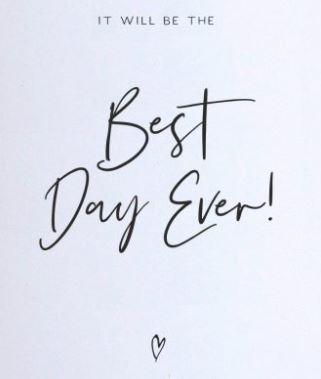 IT WILL BE THE
Best
Day Ever!